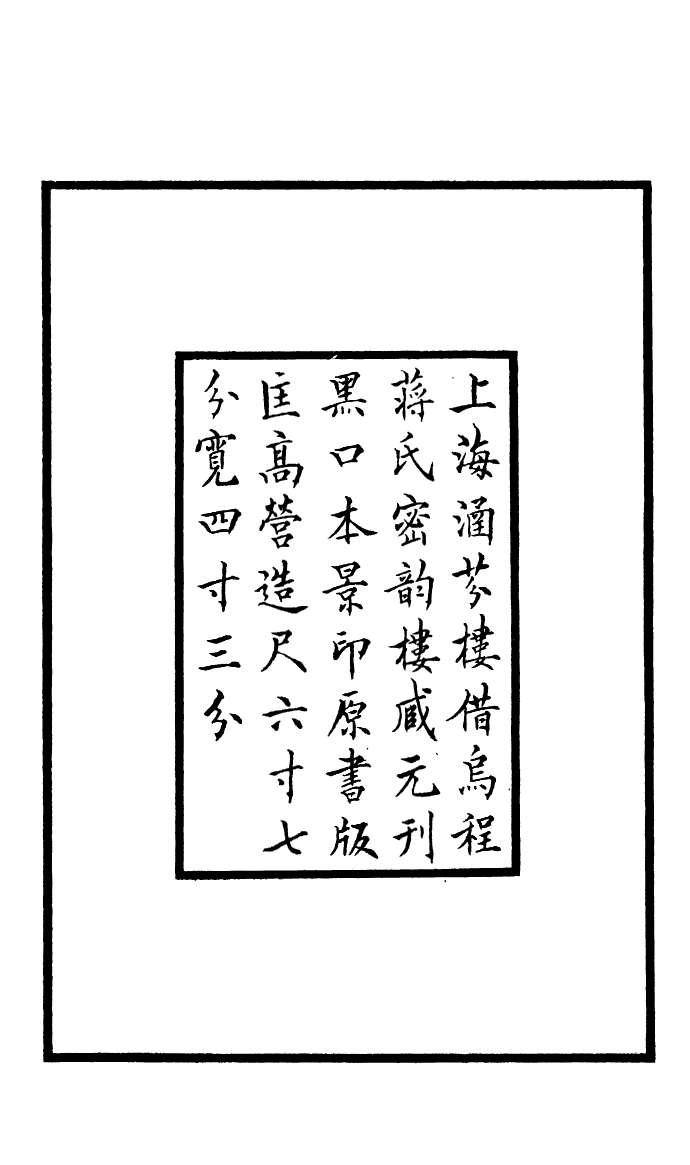 上海涵芬樓借烏程
蔣氏密韵樓臧元刊
黑口本景印原書版
匡高營造尺六寸七
分寬四寸三分